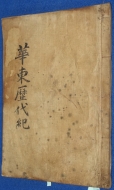 華東歷代紀